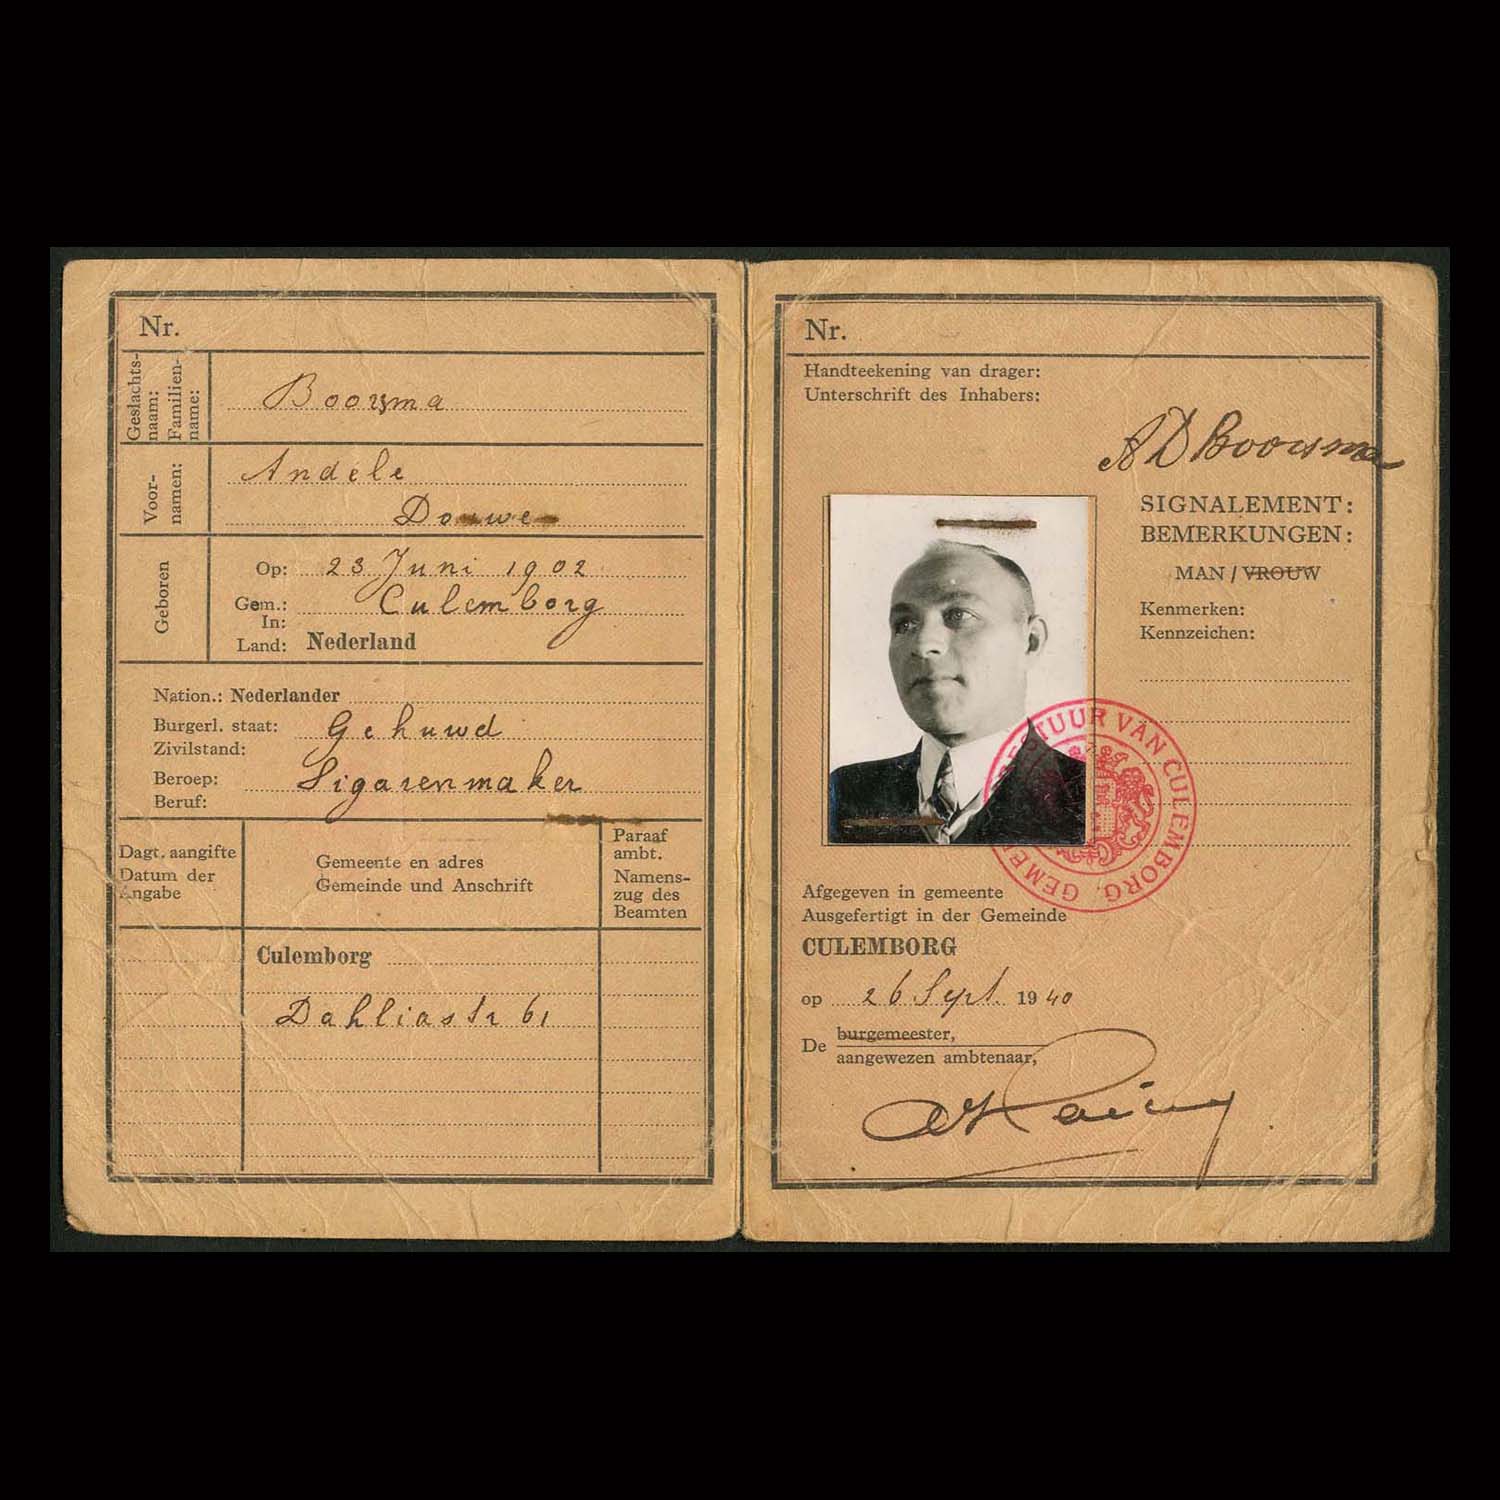 Nr.
Geslachts-
naam:
Familien-
name:
Boorsma
Voor-
namen:
Andele
Douwe
Geboren
Op: 23 Juni 1902
Gem.: Culemborg
In:
Land: Nederland
Nation.: Nederlander
Burgerl. staat: Gehuwd
Zivilstand:
Beroep: Sigarenmaker
Beruf:
Dagt. aangifte
Datum der
Angabe
Gemeente en adres
Gemeinde und Anschrift
Paraaf
ambt.
Namens-
zug des
Beamten
Culemborg
Dahliastr 61
Nr.
Handteekening van drager:
Unterschrift des Inhabers:
AD Boorsma
SIGNALEMENT:
BEMERKUNGEN:
MAN / VROUW
Kenmerken:
Kennzeichen:
GEMEENTEBESTUUR VAN CULEMBORG
Afgegeven in gemeente
Ausgefertigt in der Gemeinde
CULEMBORG
op 26 Sept. 1940
De burgemeester,
aangewezen ambtenaar,